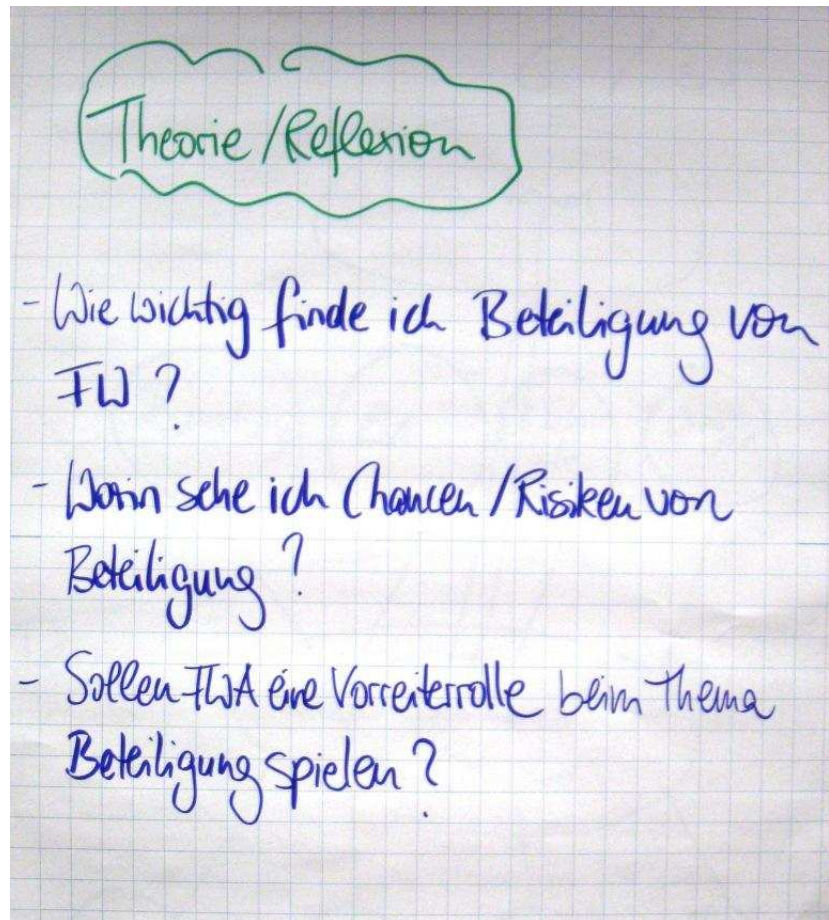 Theorie/Reflexion
- Wie wichtig finde ich Beteiligung von
FW?
- Worin sehe ich Chancen/Risiken von
Beteiligung?
- Sollen FWA eine Vorreiterrolle beim Thema
Beteiligung spielen?